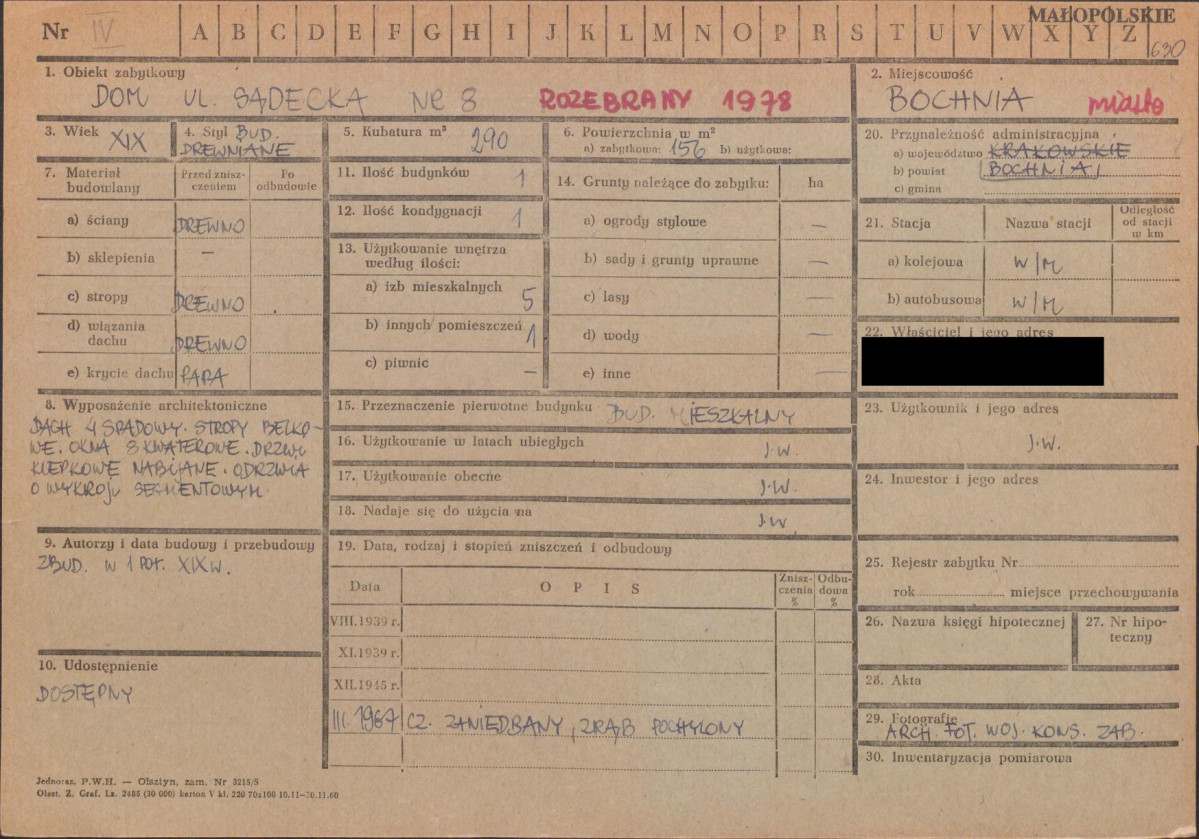 Nr IV A B C D E F G H I J K L M N O P R S T U V W X Y Z
MAŁOPOLSKIE
630
1. Obiekt zabytkowy
DOM UL. SĄDECKA NR 8 ROZEBRANY 1978
2. Miejscowość
BOCHNIA miasto
3. Wiek XIX
4. Styl BUD.
DREWNIANE
5. Kubatura m³ 290
6. Powierzchnia w m²
a) zabytkowa: 156 b) użytkowa:
20. Przynależność administracyjna
a) województwo KRAKOWSKIE
b) powiat BOCHNIA
c) gmina
7. Materiał budowlany
Przed zniszczeniem
Po odbudowie
a) ściany DREWNO
b) sklepienia —
c) stropy DREWNO
d) wiązania dachu DREWNO
e) krycie dachu PAPA
11. Ilość budynków 1
12. Ilość kondygnacji 1
13. Użytkowanie wnętrza
według ilości:
a) izb mieszkalnych 5
b) innych pomieszczeń 1
c) piwnic —
14. Grunty należące do zabytku: ha
a) ogrody stylowe —
b) sady i grunty uprawne —
c) lasy —
d) wody —
e) inne —
21. Stacja Nazwa stacji Odległość od stacji w km
a) kolejowa W/M
b) autobusowa W/M
22. Właściciel i jego adres
8. Wyposażenie architektoniczne
DACH 4 SPADOWY. STROPY BELKO-
WE. OKNA 8 KWATEROWE. DRZWI
KLEPKOWE NABIJANE. ODRZWIA
O WYKROJU SEGMENTOWYM.
15. Przeznaczenie pierwotne budynku BUD. MIESZKALNY
16. Użytkowanie w latach ubiegłych J.W.
17. Użytkowanie obecne J.W.
18. Nadaje się do użycia na J.W
23. Użytkownik i jego adres
J.W.
24. Inwestor i jego adres
9. Autorzy i data budowy i przebudowy
ZBUD. W 1 POŁ. XIX W.
10. Udostępnienie
DOSTĘPNY
19. Data, rodzaj i stopień zniszczeń i odbudowy
Data OPIS Zniszczenia % Odbudowa %
VIII.1939 r.
XI.1939 r.
XII.1945 r.
III. 1967 CZ. ZANIEDBANY, ZRĄB POCHYLONY
25. Rejestr zabytku Nr
rok miejsce przechowywania
26. Nazwa księgi hipotecznej
27. Nr hipo-
teczny
28. Akta
29. Fotografie
ARCH. FOT. WOJ. KONS. ZAB.
30. Inwentaryzacja pomiarowa
Jednoraz. P.W.H. — Olsztyn, zam. Nr 3215/S
Olszt. Z. Graf. Lz. 2485 (30 000) karton V kl. 220 70x100 10.11—30.11.60